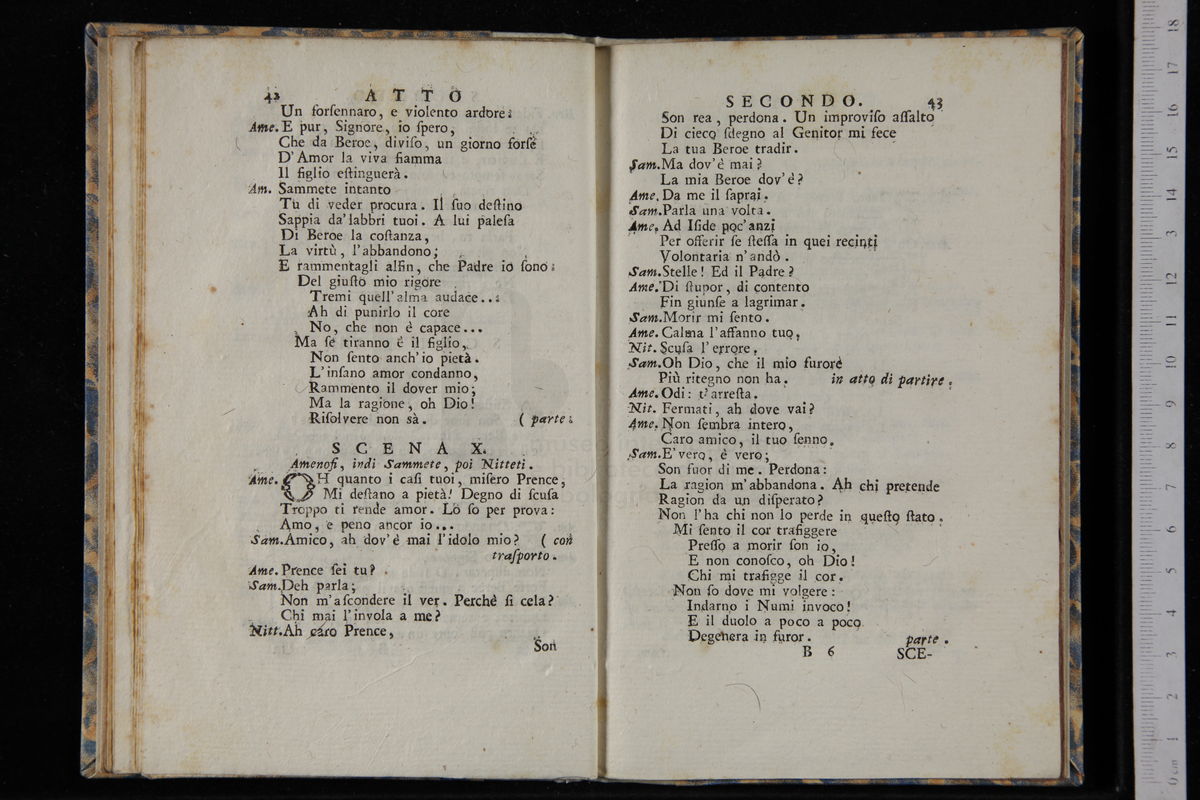 42 ATTO
Un forſennaro, e violento ardore:
Ame. E pur, Signore, io ſpero,
Che da Beroe, diviſo, un giorno forſe
D'Amor la viva fiamma
Il figlio eſtinguerà.
Am. Sammete intanto
Tu di veder procura. Il ſuo deſtino
Sappia da' labbri tuoi. A lui paleſa
Di Beroe la coſtanza,
La virtù, l'abbandono;
E rammentagli alfin, che Padre io ſono:
Del giuſto mio rigore
Tremi quell'alma audace..:
Ah di punirlo il core
No, che non è capace...
Ma ſe tiranno è il figlio,
Non ſento anch'io pietà.
L'inſano amor condanno,
Rammento il dover mio;
Ma la ragione, oh Dio!
Riſolvere non sà. ( parte:
SCENA X.
Amenofi, indi Sammete, poi Nitteti.
Ame. OH quanto i caſi tuoi, miſero Prence,
Mi deſtano a pietà! Degno di ſcuſa
Troppo ti rende amor. Lo ſo per prova:
Amo, e peno ancor io...
Sam. Amico, ah dov'è mai l'idolo mio? ( con
traſporto.
Ame. Prence ſei tu?
Sam. Deh parla;
Non m'aſcondere il ver. Perchè ſi cela?
Chi mai l'invola a me?
Nitt. Ah caro Prence,
Son
SECONDO. 43
Son rea, perdona. Un improviſo aſſalto
Di cieco ſdegno al Genitor mi fece
La tua Beroe tradir.
Sam. Ma dov'è mai?
La mia Beroe dov'è?
Ame. Da me il ſaprai.
Sam. Parla una volta.
Ame. Ad Iſide poc'anzi
Per offerir ſe ſteſſa in quei recinti
Volontaria n'andò.
Sam. Stelle! Ed il Padre?
Ame. Di ſtupor, di contento
Fin giunſe a lagrimar.
Sam. Morir mi ſento.
Ame. Calma l'affanno tuo,
Nit. Scuſa l'errore,
Sam. Oh Dio, che il mio furore
Più ritegno non ha. in atto di partire.
Ame. Odi: t'arreſta.
Nit. Fermati, ah dove vai?
Ame. Non ſembra intero,
Caro amico, il tuo ſenno.
Sam. E' vero, è vero;
Son fuor di me. Perdona:
La ragion m'abbandona. Ah chi pretende
Ragion da un diſperato?
Non l'ha chi non lo perde in queſto ſtato.
Mi ſento il cor trafiggere
Preſſo a morir ſon io,
E non conoſco, oh Dio!
Chi mi trafigge il cor.
Non ſo dove mi volgere:
Indarno i Numi invoco!
E il duolo a poco a poco
Degenera in furor. parte.
B 6 SCE-